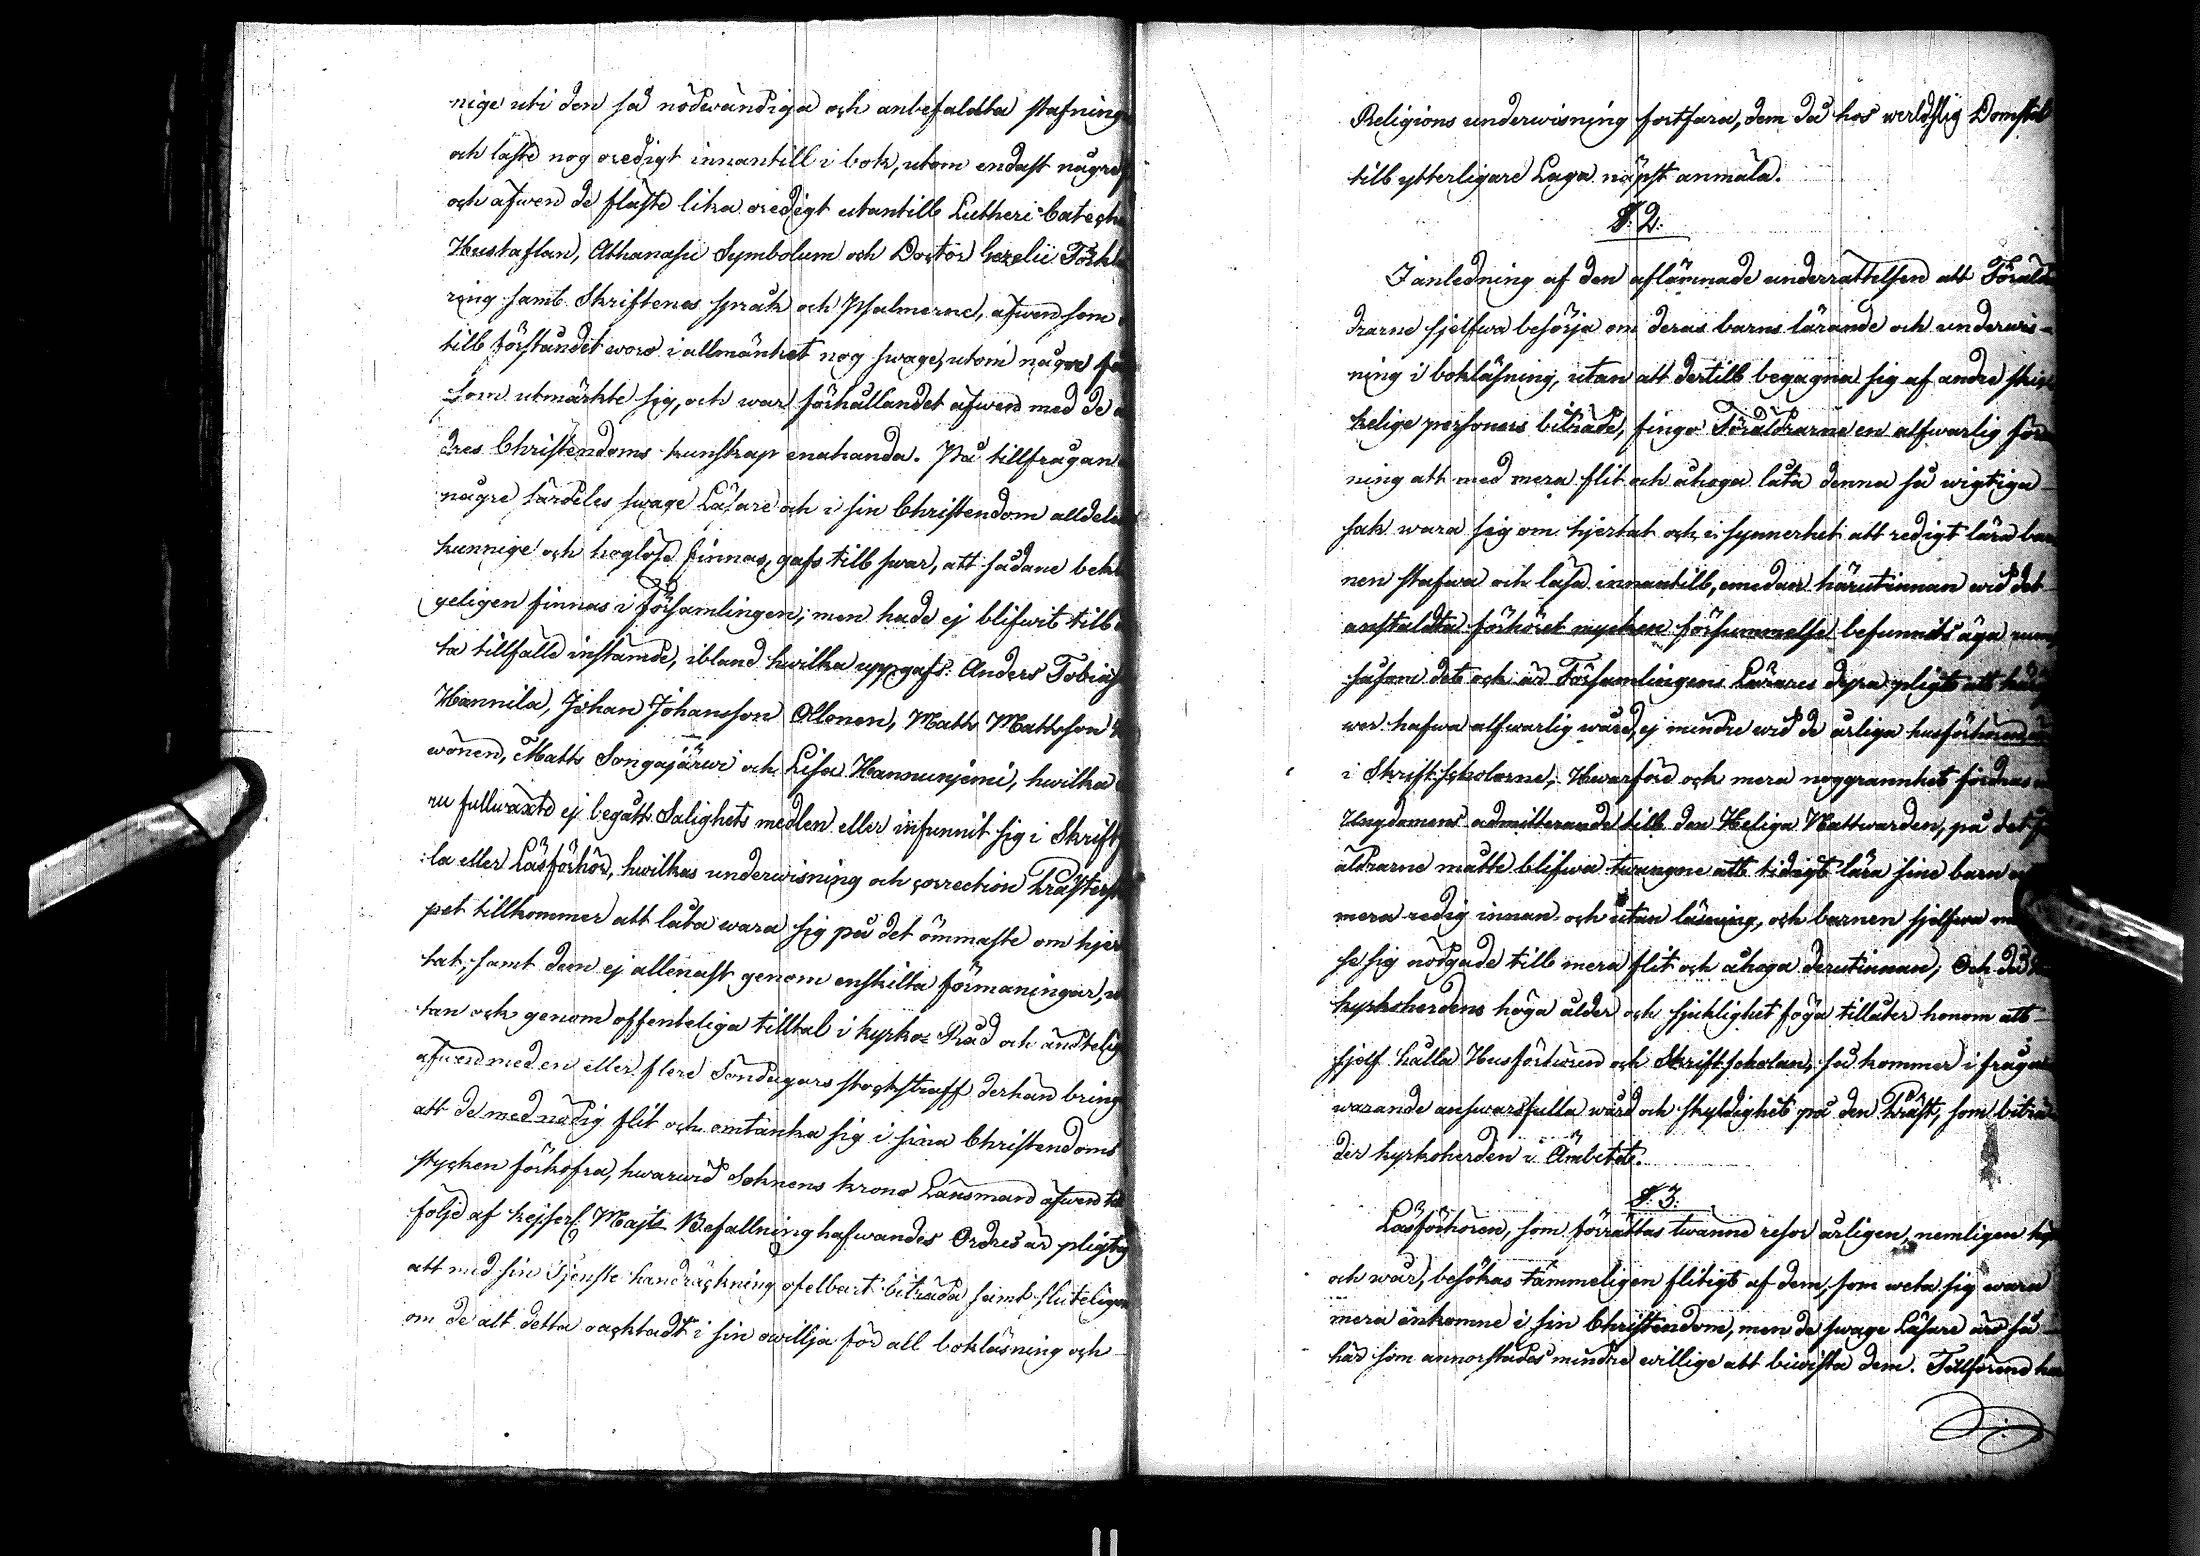 nige uti den så nödwändiga och anbefaldta stafning
och läste nog oredigt innantill i bok, utom endast någre
och äfwen de fläste lika oredigt utantill Lutheri Catech
Hustaflan, Athanasii Symbolum och Doctor Gezelii Förkla
ring samt Skriftenes språk och Psalmerne, äfwen som
till förståndet woro i allmänhet nog swage, utom någre få
som utmärkte sig, och war förhållandet äfwen med de
dres Christendoms kunskap enahanda. På tillfrågan
någre särdeles swage Läsare och i sin Christendom alldeles
kunnige och hoglöse finnas, gafs till swar, att sådane bekla
geligen finnas i Församlingen; men hade ej blifwit till
ta tillfälle instämde, ibland hwilka uppgafs: Anders Tobias
Hannila, Johan Johansson Ollonen, Matts Mattsson
wonen, Matts Songajärwi och Lisa Hannunjemi, hwilka
ru fullwäxte ej begått Salighets medlen eller infunnit sig i Skrift
la eller Läsförhör, hwilkas underwisning och correction Prästerska
pet tillkommer att låta wara sig på det ömmaste om hjer
tat, samt dem ej allenast genom enskilta förmaningar, u
tan och genom offenteliga tilltal i kyrko= Råd och ändtelig
äfwen med en eller flere Söndagars stockstraff derhän bring
att de med nödig flit och omtanka sig i sina Christendoms
stycken förkofra, hwarwid Soknens krono Länsman äfwen till
följe af kejserl. Majts Befallningshafwandes Ordres är pligtig
att med sin tjenste handräckning ofelbart biträda samt sluteligen
om de alt detta oachtadt i sin owillja för all bokläsning och
Religions underwisning fortfara, dem då hos werldslig Domstol
till ytterligare Laga näpst anmäla.
§. 2.
I anledning af den aflämnade underrättelsen att Föräld
rarne sjelfwa besörja om deras barns lärande och underwis-
ning i bokläsning, utan att dertill begagna sig af andre skic
kelige personers biträde, fingo Föräldrarne en alfwarlig för
ning att med mera flit och åhoga låta denna så wigtiga
sak wara sig om hjertat och i synnerhet att redigt lära bar
nen stafwa och läsa innantill, emedan härutinnan wid det
anstaldta förhöret mycken försummelse befunnits äga rum,
såsom det och är Församlingens Lärares dyra pligt att här
wer hafwa alfwarlig wård, ej mindre wid de årliga husförhören
i Skriftscholorne, Hwarföre och mera noggrannhet fordras
Ungdomens admitterande till den Heliga Nattwarden, på det
äldrarne måtte blifwa twungne att tidigt lära sine barn
mera redig innan och utan läsning, och barnen sjelfwa
se sig nödgade till mera flit och åhoga derutinnan; Och då
kyrkoherdens höga ålder och sjuklighet föga tillåter honom att
sjelf hålla Husförhören och Skriftscholan, så kommer i fråga
warande answarsfulla wård och skyldighet på den Präst, som biträ
der kyrkoherden i Ämbetet.
§. 3.
Läsförhören, som förrättas twänne resor årligen, nemligen hö
och wår, besökas tämmeligen flitigt af dem, som weta sig wara
mera inkomne i sin Christendom, men de swage Läsare äro så
här som annorstädes mindre willige att biwista dem. Tillförene ha